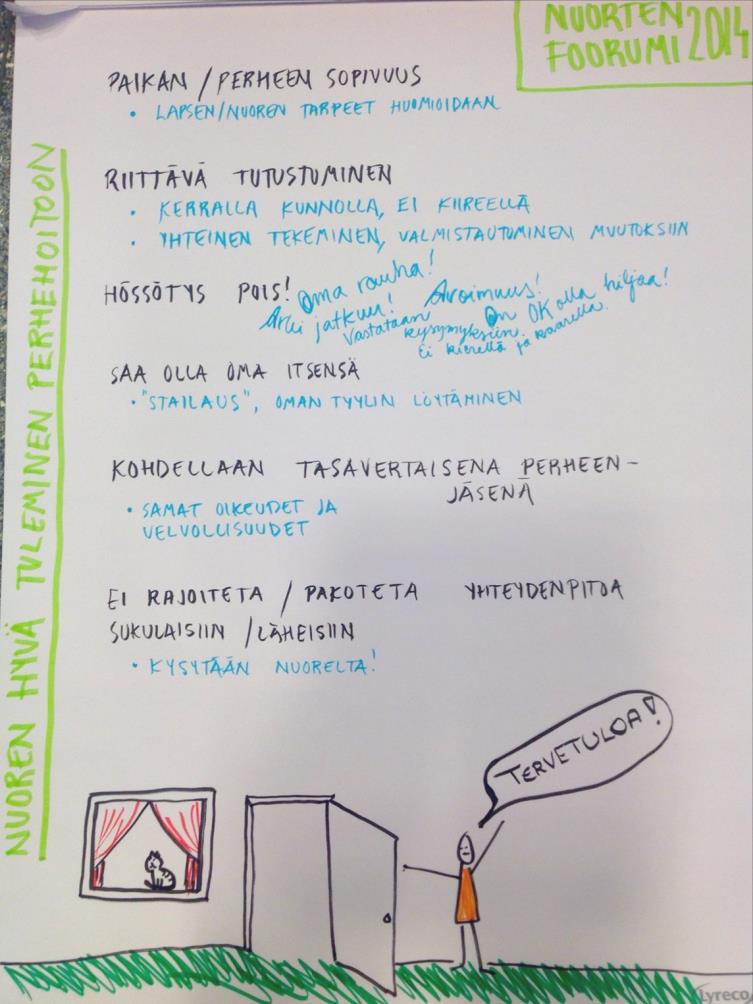 NUORTEN
FOORUMI 2014
NUOREN HYVÄ TULEMINEN PERHEHOITOON
PAIKAN / PERHEEN SOPIVUUS
• LAPSEN/NUOREN TARPEET HUOMIOIDAAN
RIITTÄVÄ TUTUSTUMINEN
• KERRALLA KUNNOLLA, EI KIIREELLÄ
• YHTEINEN TEKEMINEN, VALMISTAUTUMINEN MUUTOKSIIN
HÖSSÖTYS POIS!
Oma rauha!
Arki jatkuu!
Avoimuus!
Vastataan kysymyksiin.
On OK olla hiljaa!
Ei kierellä ja kaarella.
SAA OLLA OMA ITSENSÄ
• "STAILAUS", OMAN TYYLIN LÖYTÄMINEN
KOHDELLAAN TASAVERTAISENA PERHEEN-
JÄSENÄ
• SAMAT OIKEUDET JA
VELVOLLISUUDET
EI RAJOITETA / PAKOTETA YHTEYDENPITOA
SUKULAISIIN / LÄHEISIIN
• KYSYTÄÄN NUORELTA!
TERVETULOA!
Lyreco